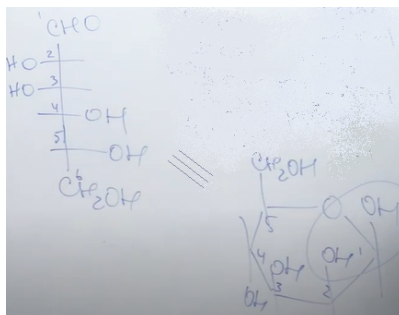 1 CHO
HO 2
HO 3
4 OH
5 OH
6 CH2OH
CH2OH
O OH
5
4 OH OH 1
OH 3 2